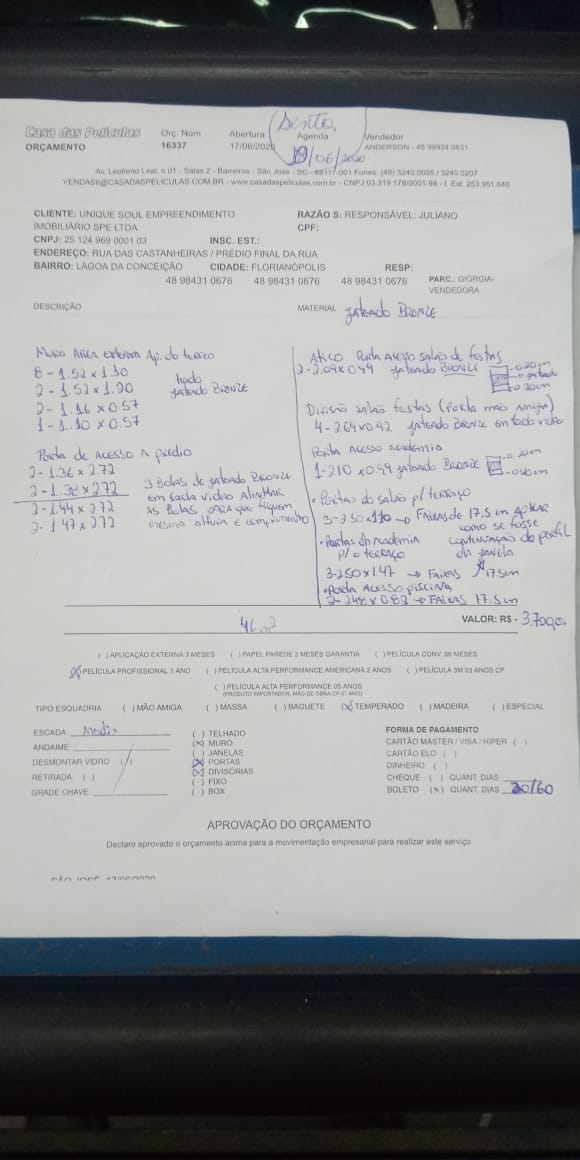 Casa das Películas
ORÇAMENTO
Orç. Núm
16337
Abertura
17/06/2020
Agenda
Sexta
19/06/2020
Vendedor
ANDERSON - 48 99924 0831
Av. Leoberto Leal, n 01 - Salas 2 - Barreiros - São José - SC - 88117-001 Fones: (48) 3240.0605 / 3240.0207
VENDAS6@CASADASPELICULAS.COM.BR - www.casadaspeliculas.com.br - CNPJ 03.319.178/0001-98 - I. Est. 253.951.640
CLIENTE: UNIQUE SOUL EMPREENDIMENTO
IMOBILIÁRIO SPE LTDA
RAZÃO S: RESPONSÁVEL: JULIANO
CPF:
CNPJ: 25 124 969 0001 03 INSC. EST.:
ENDEREÇO: RUA DAS CASTANHEIRAS / PRÉDIO FINAL DA RUA
BAIRRO: LAGOA DA CONCEIÇÃO CIDADE: FLORIANÓPOLIS RESP:
48 98431 0676 48 98431 0676 48 98431 0676
PARC.: GIORGIA-
VENDEDORA
DESCRIÇÃO
MATERIAL Jateado Bronze
Muro Área externa Ap. do terreo
8 - 1.52 x 1.30
2 - 1.52 x 1.20
2 - 1.16 x 0.57
1 - 1.10 x 0.57
Jateado Bronze
Porta de Acesso A predio
2 - 1.36 x 2.72
2 - 1.38 x 2.72
2 - 1.44 x 2.72
2 - 1.47 x 2.72
3 Bolas de jateado Bronze
em cada vidro Alinhar
As Bolas para que fiquem
mesma altura e comprimento
Atico Porta Acesso salão de festas
2 - 2.09 x 0.99 jateado Bronze
0.20cm
jateado
0.20cm
Divisão salão festas (Porta mão Amiga)
4 - 2.64 x 0.92 jateado Bronze em todo vidro
Porta Acesso Academia
1 - 2.10 x 0.99 jateado Bronze
0.20cm
• Portas do salão p/ terraço
3 - 2.50 x 1.10 → Faixas de 17,5 cm Aplicar
como se fosse
continuação do perfil
da janela
• Portas da academia
p/ o terraço
3 - 2.50 x 1.47 → Faixas 17,5cm
• Porta Acesso piscina
2 - 2.48 x 0.82 → Faixas 17.5cm
46m²
VALOR: R$ - 3.700,00
( ) APLICAÇÃO EXTERNA 3 MESES ( ) PAPEL PAREDE 3 MESES GARANTIA ( ) PELÍCULA CONV. 06 MESES
(X) PELÍCULA PROFISSIONAL 1 ANO ( ) PELÍCULA ALTA PERFORMANCE AMERICANA 2 ANOS ( ) PELÍCULA 3M 03 ANOS CP
( ) PELÍCULA ALTA PERFORMANCE 05 ANOS
(PRODUTO IMPORTADOR, MÃO DE OBRA CP 01 ANO)
TIPO ESQUADRIA ( ) MÃO AMIGA ( ) MASSA ( ) BAGUETE (X) TEMPERADO ( ) MADEIRA ( ) ESPECIAL
ESCADA: Media
ANDAIME:
DESMONTAR VIDRO ( )
RETIRADA: ( )
GRADE CHAVE
( ) TELHADO
(X) MURO
( ) JANELAS
(X) PORTAS
(X) DIVISÓRIAS
( ) FIXO
( ) BOX
FORMA DE PAGAMENTO
CARTÃO MASTER / VISA / HIPER ( )
CARTÃO ELO ( )
DINHEIRO ( )
CHEQUE ( ) QUANT DIAS
BOLETO (X) QUANT. DIAS 30/60
APROVAÇÃO DO ORÇAMENTO
Declaro aprovado o orçamento acima para a movimentação empresarial para realizar este serviço